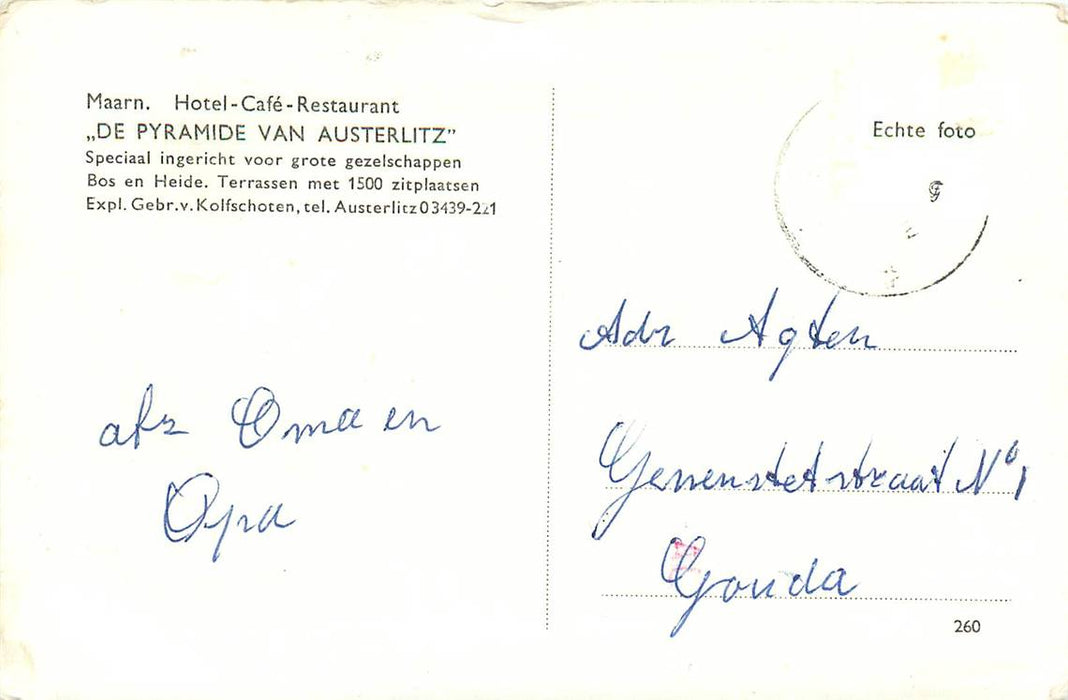 Maarn. Hotel-Café-Restaurant
„DE PYRAMIDE VAN AUSTERLITZ”
Speciaal ingericht voor grote gezelschappen
Bos en Heide. Terrassen met 1500 zitplaatsen
Expl. Gebr. v. Kolfschoten, tel. Austerlitz 03439-221
afz Oma en
Opa
Echte foto
Adr Agten
N° 1
Gouda
260